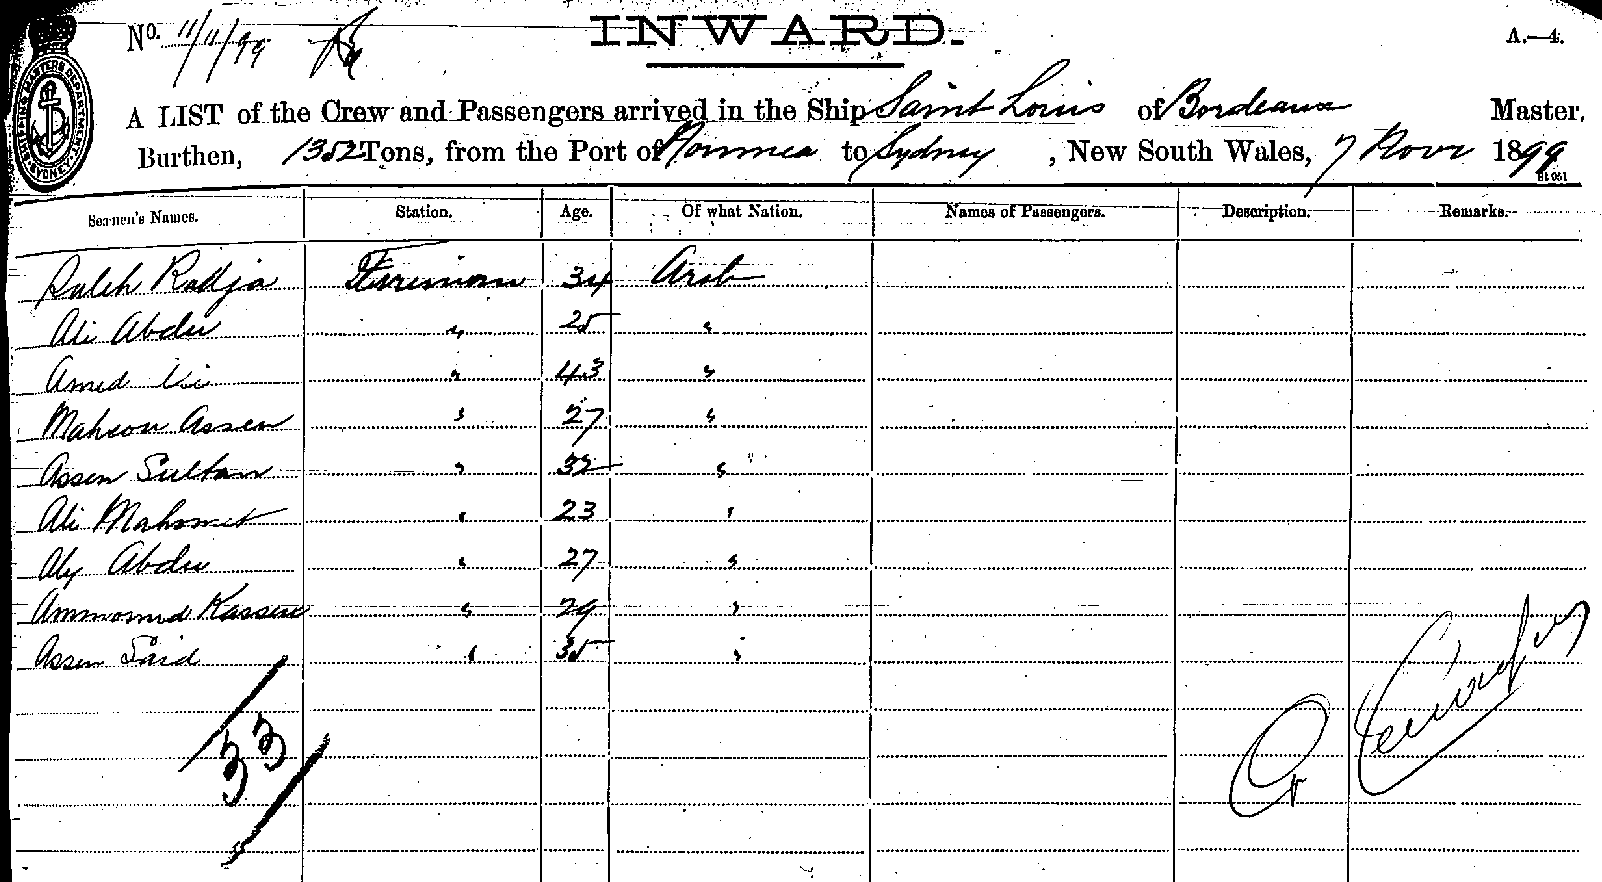 No. 11/11/99 INWARD. A.—4.
A LIST of the Crew and Passengers arrived in the Ship Saint Louis of Bordeaux Master,
Burthen, 1352 Tons, from the Port of Noumea to Sydney, New South Wales, 7 Novr 1899
Seamen's Names. Station. Age. Of what Nation. Names of Passengers. Description. Remarks.
Saleh Radja 34 Arab
Ali Abdu " 25 "
Amed " 43 "
Assen " 27 "
Assen Sultan " 32 "
Ali Mahomet " 23 "
Aly Abdu " 27 "
Kassem " 29 "
Assen Said " 35 "
33